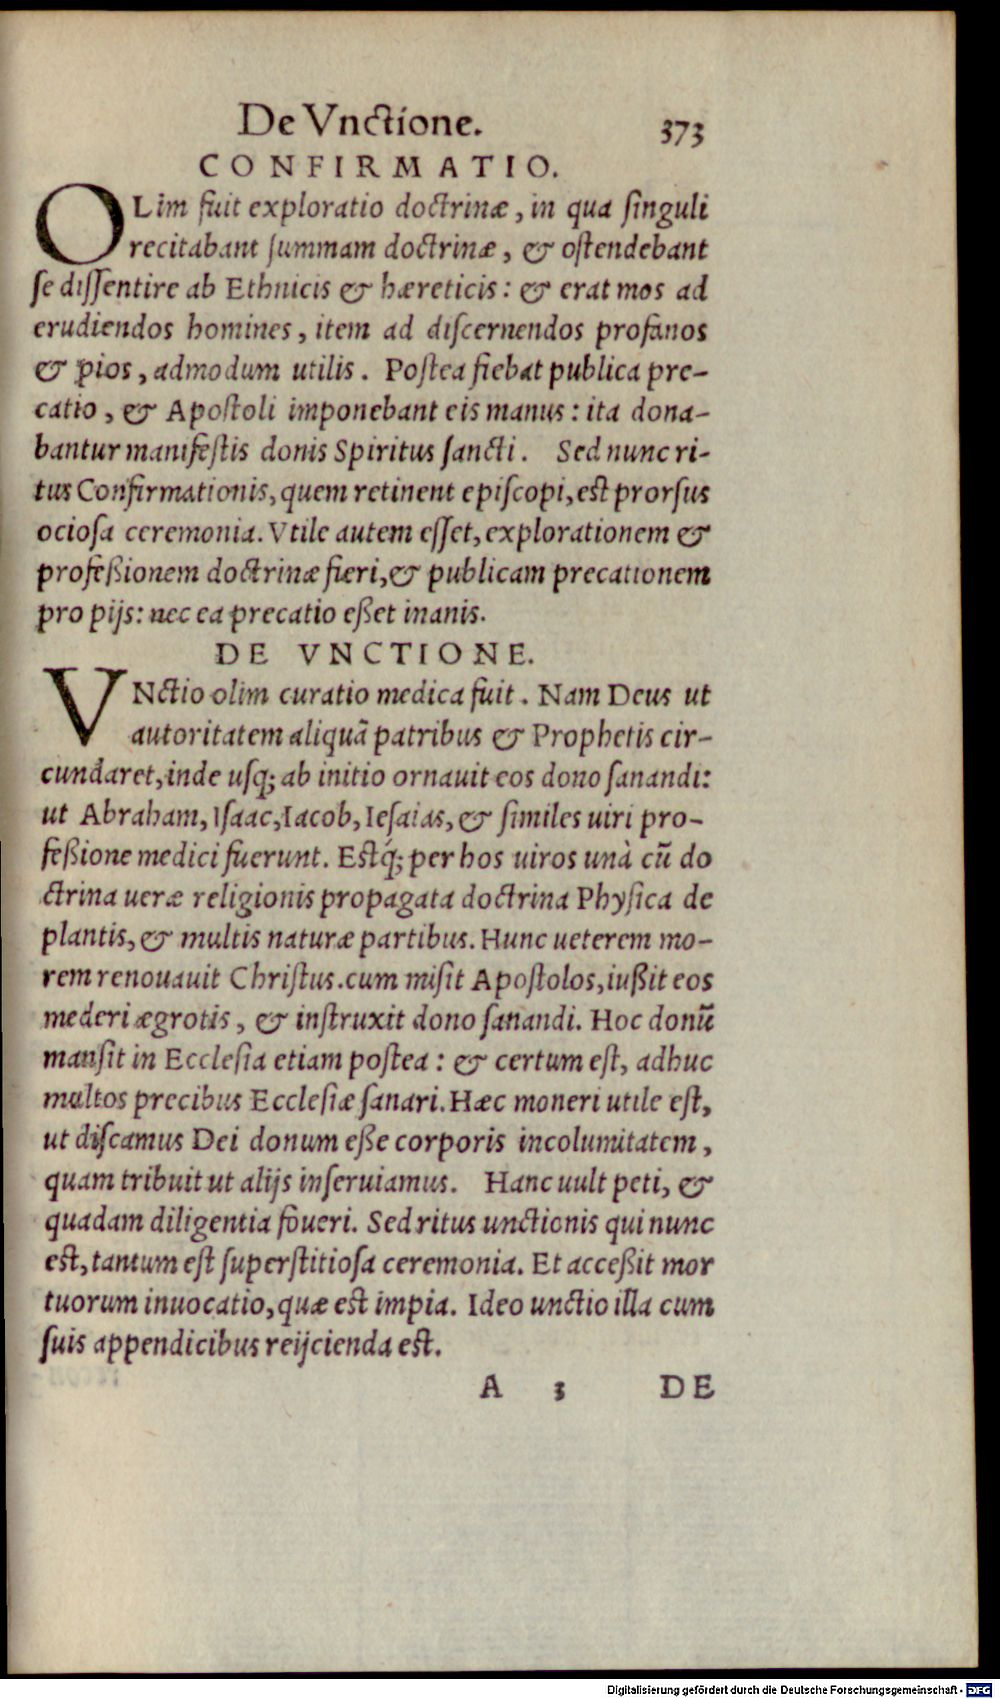 De Vnctione. 373
CONFIRMATIO.
OLim fuit exploratio doctrinæ, in qua ſinguli
recitabant ſummam doctrinæ, & oſtendebant
ſe diſſentire ab Ethnicis & hæreticis: & erat mos ad
erudiendos homines, item ad diſcernendos profanos
& pios, admodum utilis. Poſtea fiebat publica pre-
catio, & Apoſtoli imponebant eis manus: ita dona-
bantur manifeſtis donis Spiritus ſancti. Sed nunc ri-
tus Confirmationis, quem retinent epiſcopi, eſt prorſus
ocioſa ceremonia. Vtile autem eſſet, explorationem &
profeßionem doctrinæ fieri, & publicam precationem
pro pijs: nec ea precatio eßet inanis.
DE VNCTIONE.
VNctio olim curatio medica fuit. Nam Deus ut
autoritatem aliquã patribus & Prophetis cir-
cundaret, inde uſq; ab initio ornauit eos dono ſanandi:
ut Abraham, Iſaac, Iacob, Ieſaias, & ſimiles uiri pro-
feßione medici fuerunt. Eſtq́; per hos uiros unà cũ do
ctrina ueræ religionis propagata doctrina Phyſica de
plantis, & multis naturæ partibus. Hunc ueterem mo-
rem renouauit Chriſtus. cum miſit Apoſtolos, iußit eos
mederi ægrotis, & inſtruxit dono ſanandi. Hoc donũ
manſit in Eccleſia etiam poſtea: & certum eſt, adhuc
multos precibus Eccleſiæ ſanari. Hæc moneri utile eſt,
ut diſcamus Dei donum eße corporis incolumitatem,
quam tribuit ut alijs inſeruiamus. Hanc uult peti, &
quadam diligentia foueri. Sed ritus unctionis qui nunc
eſt, tantum eſt ſuperſtitioſa ceremonia. Et acceßit mor
tuorum inuocatio, quæ eſt impia. Ideo unctio illa cum
ſuis appendicibus reijcienda eſt.
A 3 DE
Digitalisierung gefördert durch die Deutsche Forschungsgemeinschaft - DFG